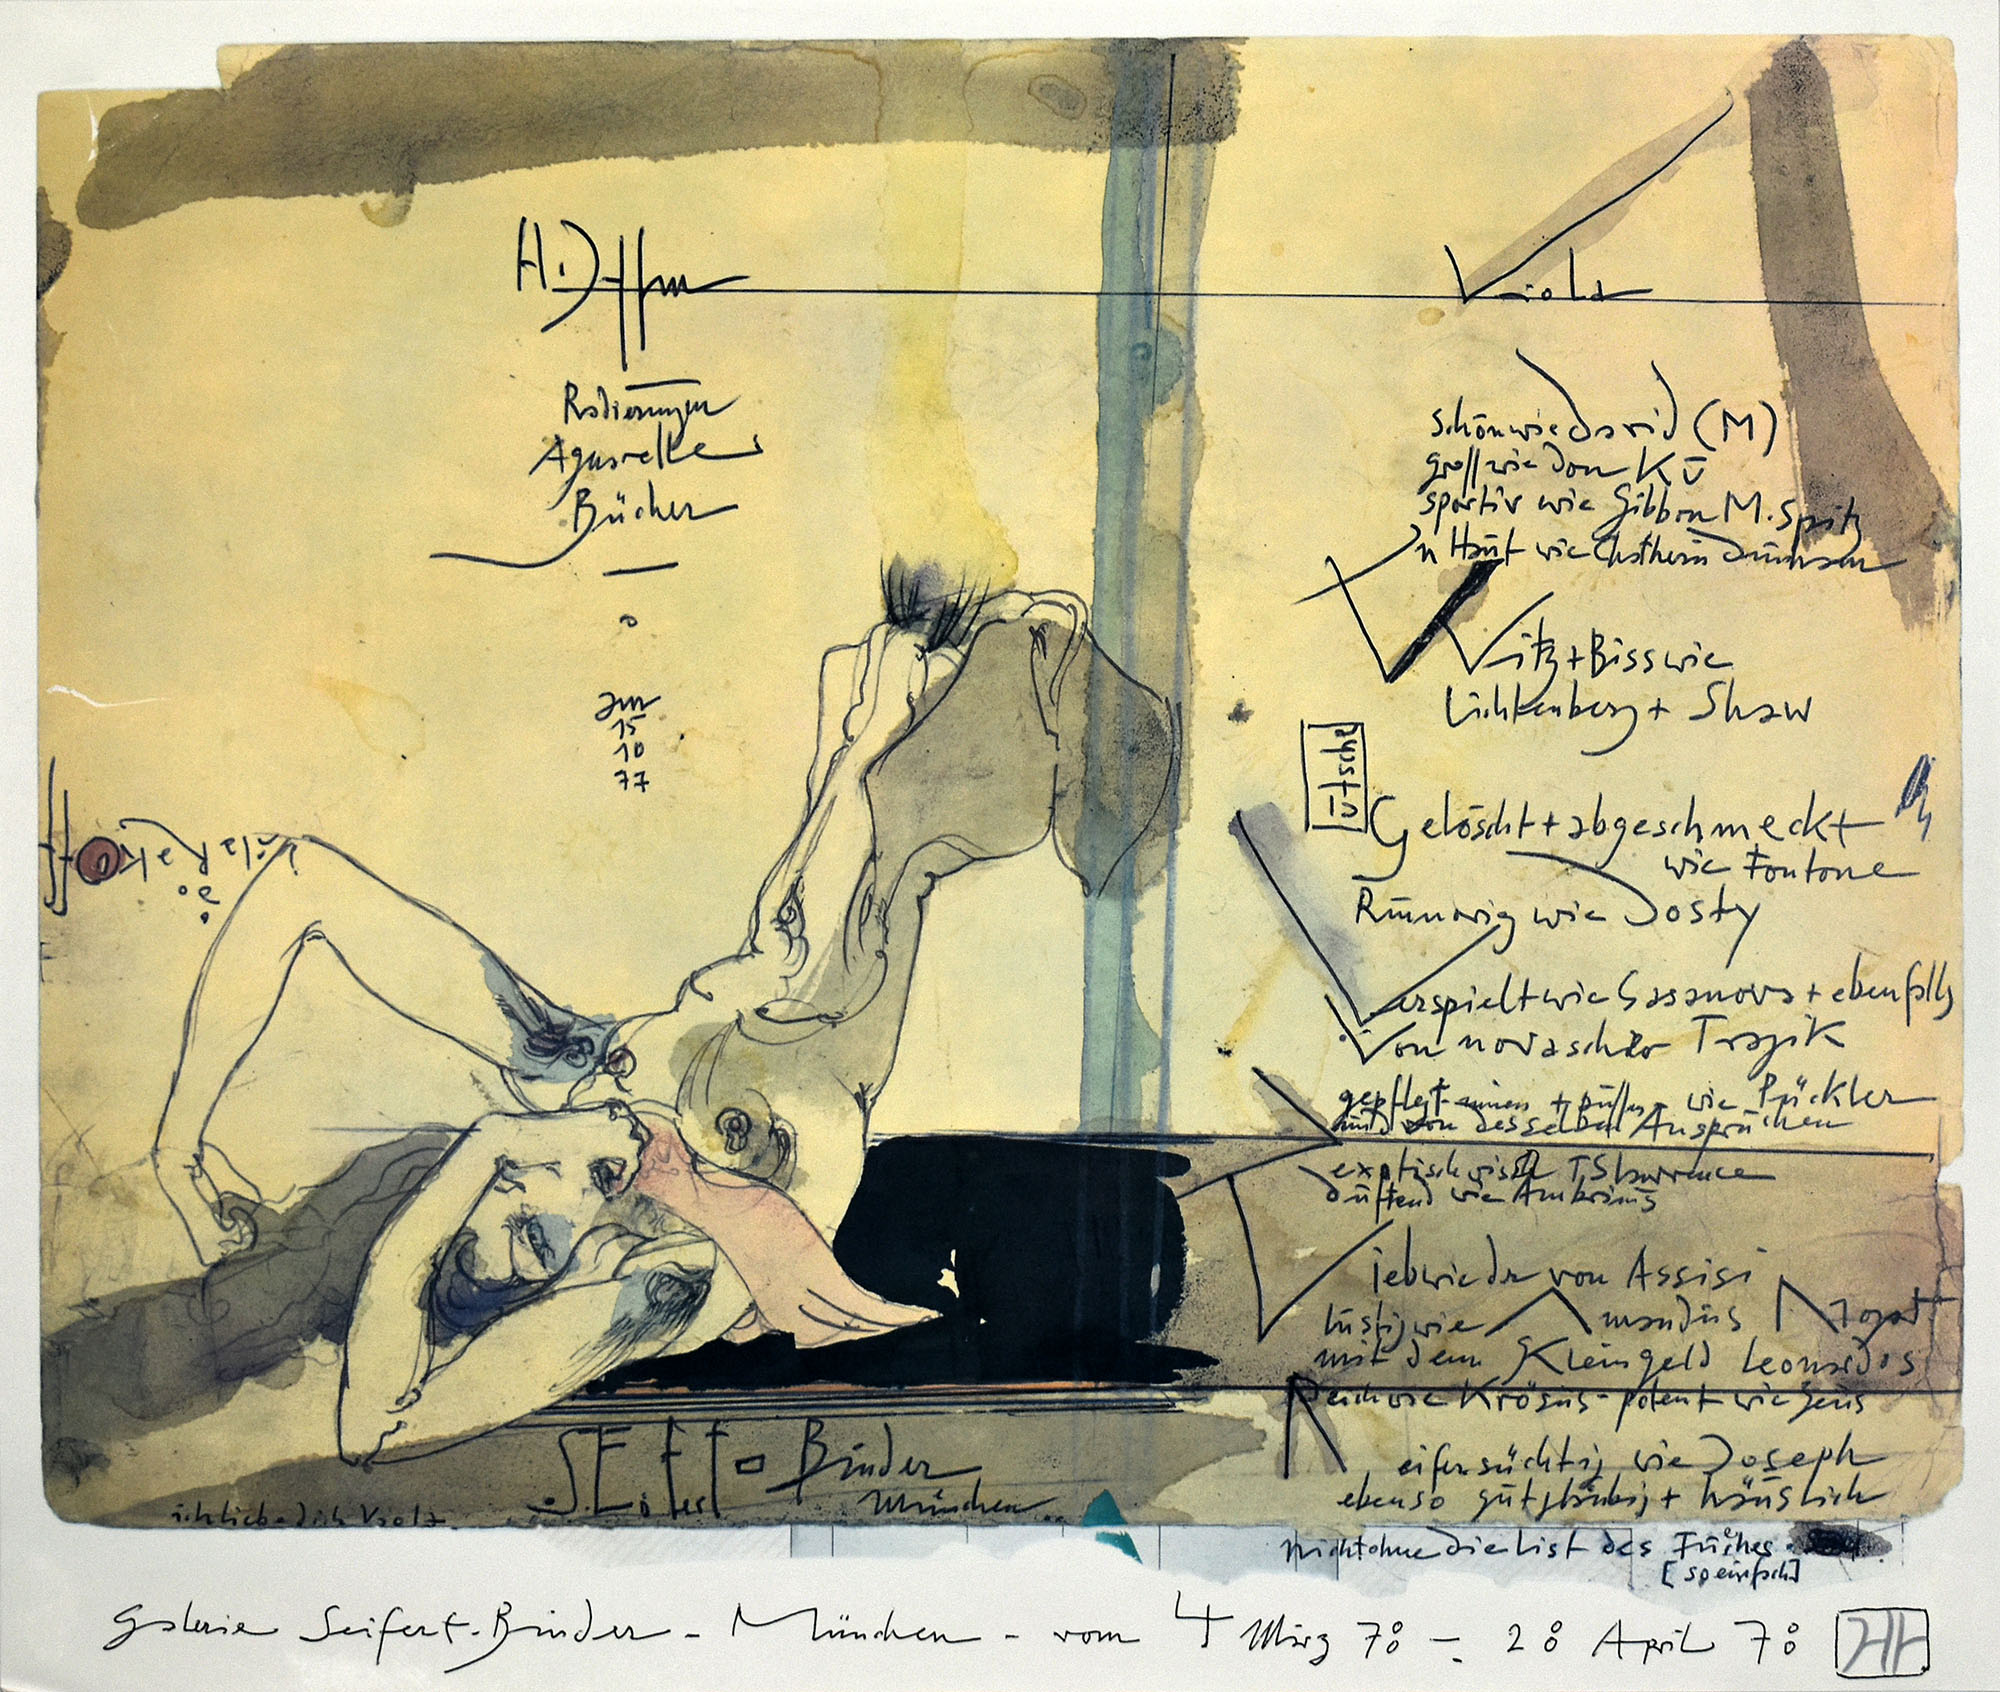 Rädierungen
Aquarelle
Bücher
am
15
10
77
Viola
schön wie David (M)
gross wie Don Kū
sportiv wie Gibbon M. Spitz
'n Haut wie
Witz + Biss wie
Lichtenberg + Shaw
Gelöscht + abgeschmeckt
wie Fontane
wie Dosty
Verspielt wie Casanova + ebenfalls
Von novascher Tragik
gepflegt + wie Pückler
und von desselben Ansprüchen
exotisch wie T S Lawrence
duftend wie Ambrins
Vieb wie der von Assisi
lustig wie Amandus Mozart
mit dem Kleingeld Leonardos
Reich wie Krösus - potent wie Zeus
eifersüchtig wie Joseph
ebenso gutgläubig + häuslich
nicht ohne die List des Fuches
Seifert Binder
München
ich liebe dich Viola
Galerie Seifert-Binder - München - vom 4 März 78 - 28 April 78